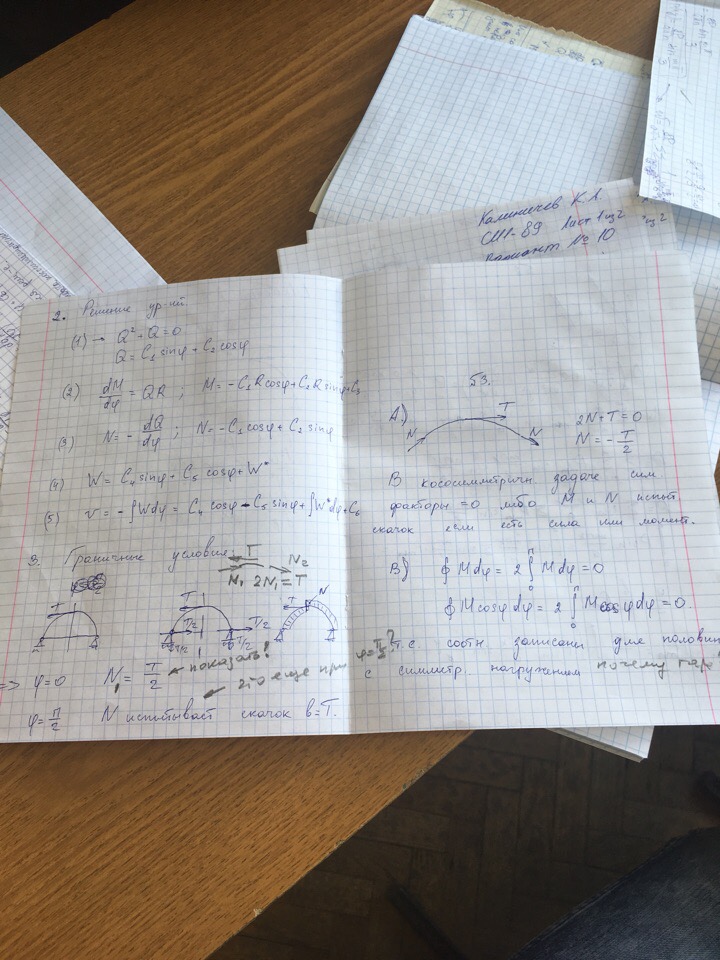 Калиничев К.А.
СМ1-89 Лист 1 из 2
Вариант № 10
2. Решение ур-ий.
(1) → Q² + Q = 0
Q = C₁sinφ + C₂cosφ
(2) dM/dφ = QR ; M = -C₁Rcosφ + C₂R sinφ + C₃
(3) N = - dQ/dφ ; N = -C₁cosφ + C₂sinφ
(4) W = C₄sinφ + C₅cosφ + W*
(5) v = -∫Wdφ = C₄cosφ - C₅sinφ + ∫W*dφ + C₆
3. Граничные условия:
T N₂
N₁ 2N₁ = T
T T T/2 T/2 T/2 N
=> φ=0 N₁ = T/2 ← показать!
это еще при φ=π/2?
φ=π/2 N испытывает скачок в = T.
53.
А.) N T N 2N+T=0
N = - T/2
В кососимметричн. задаче сим.
факторы =0 либо M и N испыт
скачок если есть сила или момент.
В) ∮ M dφ = 2 ∫₀^π M dφ = 0
∮ M cosφ dφ = 2 ∫₀^π M cosφ dφ = 0.
т.е. соотн. записаны для половин
с симметр. нагружением почему